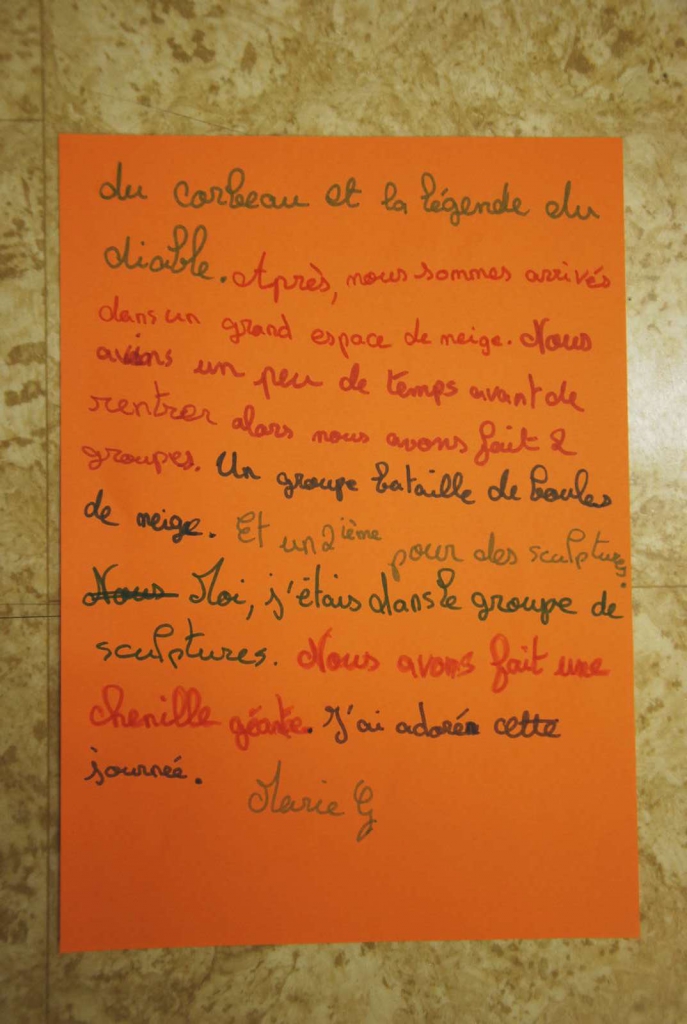 du corbeau et la légende du
diable. Après, nous sommes arrivés
dans un grand espace de neige. Nous
avions un peu de temps avant de
rentrer alors nous avons fait 2
groupes. Un groupe bataille de boules
de neige. Et un 2ième pour des sculptures.
Nous Moi, j'étais dans le groupe de
sculptures. Nous avons fait une
chenille géante. J'ai adoré cette
journée.
Marie G